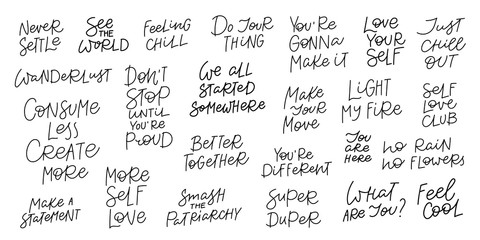 Never
Settle
See
the
World
Feeling
Chill
Do Your
Thing
You're
Gonna
Make it
Love
Your
Self
Just
Chill
Out
Wanderlust
Don't
Stop
Until
You're
Proud
We all
Started
Somewhere
Make
Your
Move
Light
My Fire
Self
Love
Club
Consume
Less
Create
More
Better
Together
You're
Different
You
are
here
No Rain
No Flowers
Make a
Statement
More
Self
Love
Smash
the
Patriarchy
Super
Duper
What
are you?
Feel
Cool